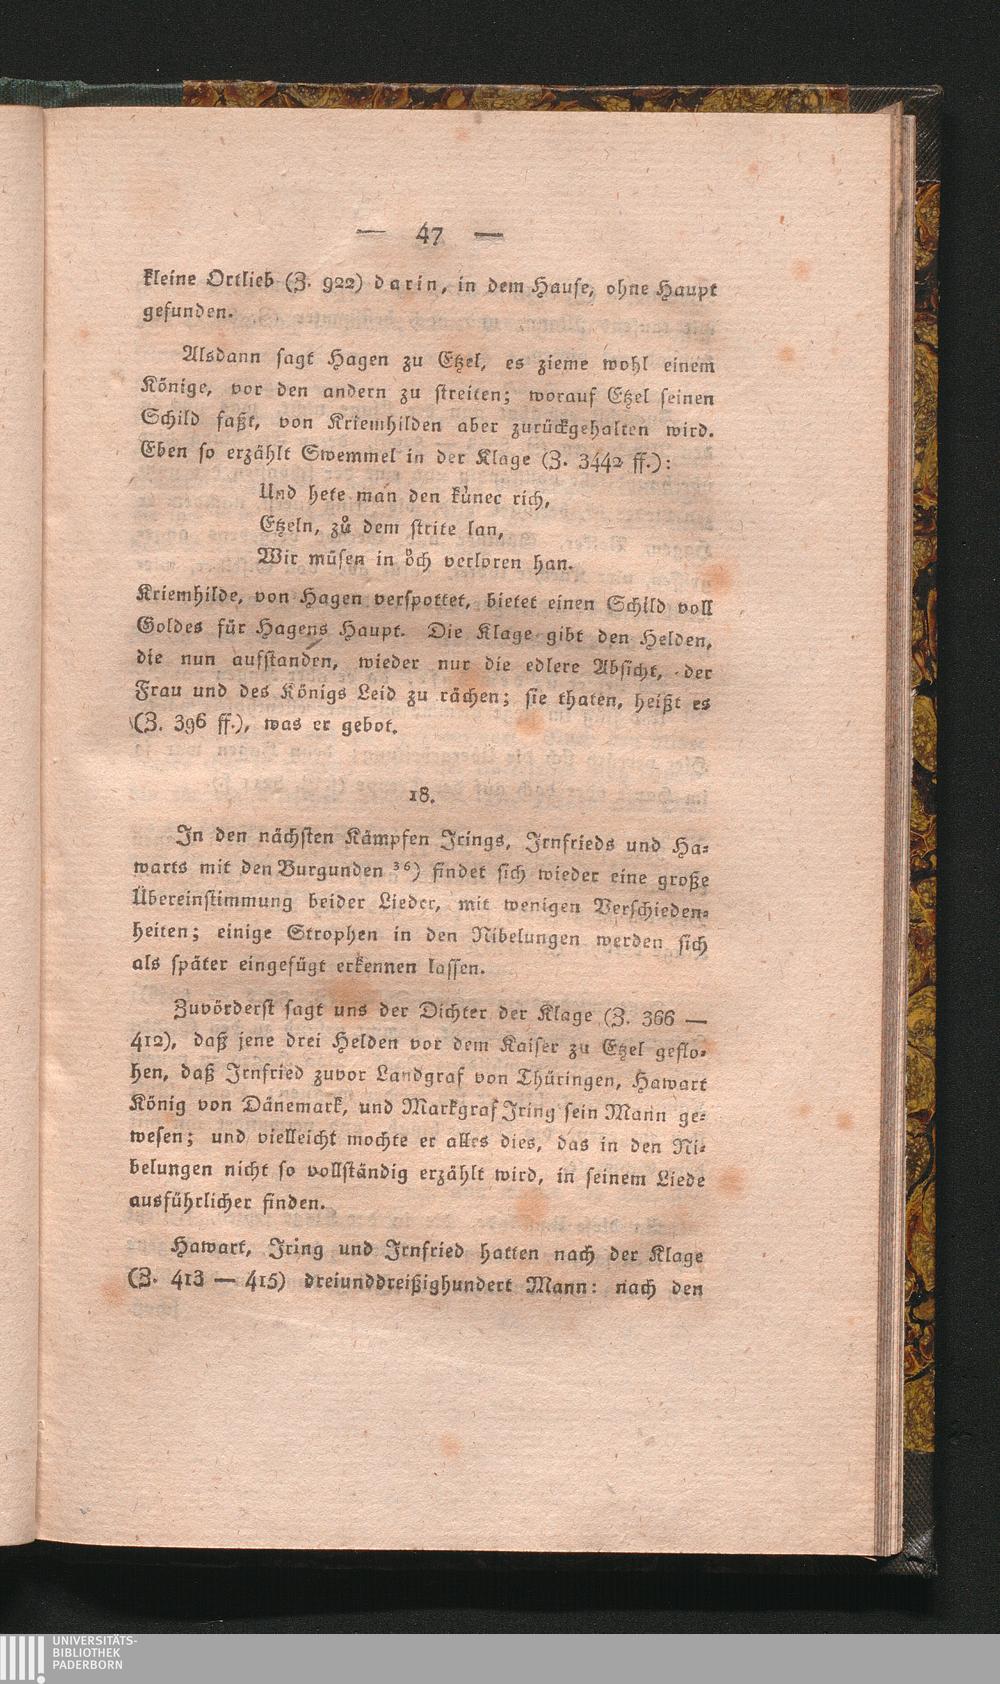 — 47 —
kleine Ortlieb (Z. 922) darin, in dem Hause, ohne Haupt
gefunden.
Alsdann sagt Hagen zu Etzel, es zieme wohl einem
Könige, vor den andern zu streiten; worauf Etzel seinen
Schild faßt, von Kriemhilden aber zurückgehalten wird.
Eben so erzählt Swemmel in der Klage (Z. 3442 ff.):
Und hete man den kůnec rich,
Etzeln, zů dem strite lan,
Wir můsen in ôch verloren han.
Kriemhilde, von Hagen verspottet, bietet einen Schild voll
Goldes für Hagens Haupt. Die Klage gibt den Helden,
die nun aufstanden, wieder nur die edlere Absicht, der
Frau und des Königs Leid zu rächen; sie thaten, heißt es
(Z. 396 ff.), was er gebot.
18.
In den nächsten Kämpfen Irings, Irnfrieds und Ha-
warts mit den Burgunden ³⁶) findet sich wieder eine große
Übereinstimmung beider Lieder, mit wenigen Verschieden-
heiten; einige Strophen in den Nibelungen werden sich
als später eingefügt erkennen lassen.
Zuvörderst sagt uns der Dichter der Klage (Z. 366 —
412), daß jene drei Helden vor dem Kaiser zu Etzel geflo-
hen, daß Irnfried zuvor Landgraf von Thüringen, Hawart
König von Dänemark, und Markgraf Iring sein Mann ge-
wesen; und vielleicht mochte er alles dies, das in den Ni-
belungen nicht so vollständig erzählt wird, in seinem Liede
ausführlicher finden.
Hawart, Iring und Irnfried hatten nach der Klage
(Z. 413 — 415) dreiunddreißighundert Mann: nach den
UNIVERSITÄTS-
BIBLIOTHEK
PADERBORN